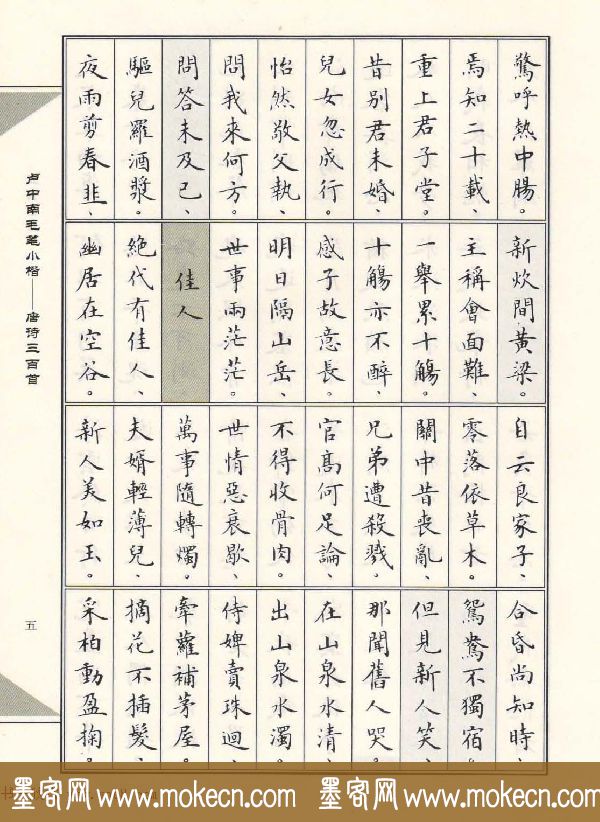 驚呼熱中腸。
焉知二十載、
重上君子堂。
昔別君未婚、
兒女忽成行。
怡然敬父執、
問我來何方。
問答未及已、
驅兒羅酒漿。
夜雨剪春韭、
新炊間黃梁。
主稱會面難、
一舉累十觴。
十觴亦不醉、
感子故意長。
明日隔山岳、
世事兩茫茫。
佳人
絕代有佳人、
幽居在空谷。
自云良家子、
零落依草木。
關中昔喪亂、
兄弟遭殺戮。
官高何足論、
不得收骨肉。
世情惡衰歇、
萬事隨轉燭。
夫婿輕薄兒、
新人美如玉。
合昏尚知時、
鴛鴦不獨宿。
但見新人笑、
那聞舊人哭。
在山泉水清、
出山泉水濁。
侍婢賣珠迴、
牽蘿補茅屋。
摘花不插髮、
采柏動盈掬。
卢中南毛笔小楷——唐诗三百首
五
墨客网 www.mokecn.com 墨客网 www.mokecn.com